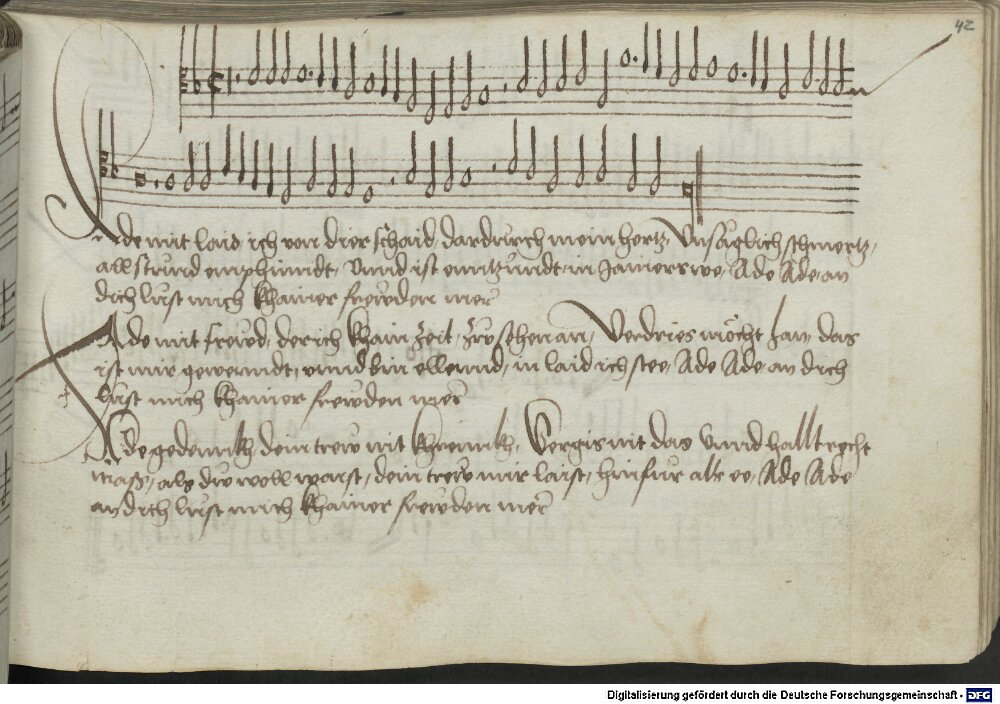 42
Ade mit laid, ich von dier schaid, dardurch mein hertz, Unsäglich schmertz,
all stund emphindt, Unnd ist enntzündt in Jamers we, Ade Ade an
dich lust mich khainer frewden mer
Ade mit frewd, der ich khain Zeit, zw sehen an, Verdries möcht han, das
ist mir gewenndt, unnd bin ellennd, in laid ich stee, Ade Ade an dich
lust mich khainer frewden mer
Ade gedennkh, dein trew nit khrennkh, Vergis nit das Unnd hallt recht
mass, als dw woll waist, dein trew mir laist, hinfur als ee, Ade Ade
an dich lust mich khainer frewden mer
Digitalisierung gefördert durch die Deutsche Forschungsgemeinschaft - DFG